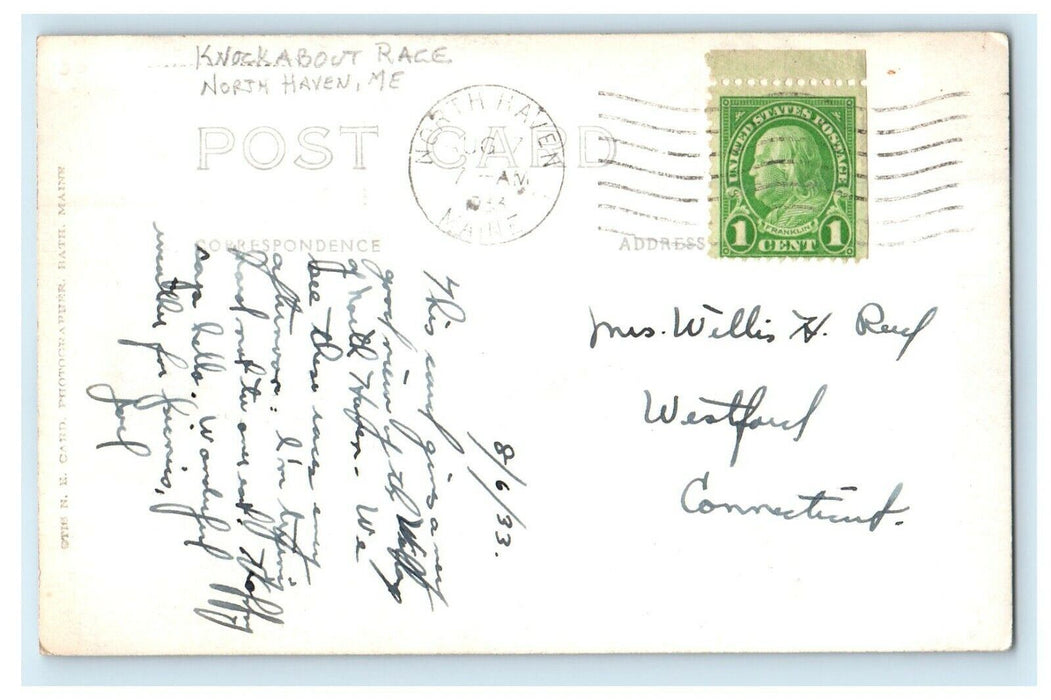 KNOCKABOUT RACE
NORTH HAVEN, ME
POST CARD
NORTH HAVEN
7 AM
MAINE
UNITED STATES POSTAGE
FRANKLIN
1 CENT 1
CORRESPONDENCE
ADDRESS
OTIS N. E. CARD, PHOTOGRAPHER, BATH, MAINE
8/6/33.
This card gives a very
good view of the
of North Haven - We
see these races every
afternoon. I'm
hard not to
says hello. Wonderful
weather for
Mrs. Willis H. Reed
Westford
Connecticut.